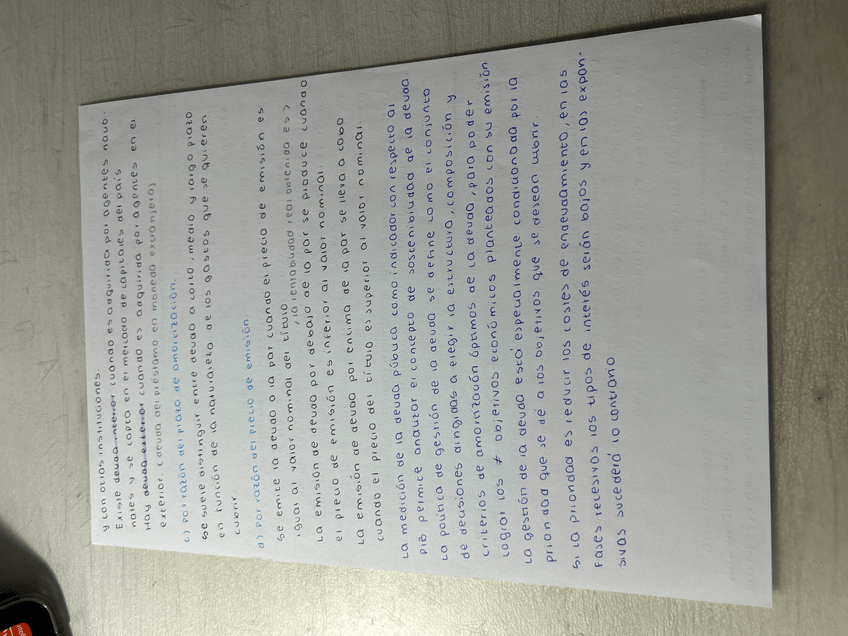 y con otras instituciones.
Existe deuda interior cuando es adquirida por agentes nacio-
nales y se capta en el mercado de capitales del país
Hay deuda exterior cuando es adquirida por agentes en el
exterior. (deuda del préstamo en moneda extranjera)
c) Por razón del plazo de amortización.
Se suele distinguir entre deuda a corto, medio y largo plazo
en función de la naturaleza de los gastos que se quieren
cubrir
d) Por razón del precio de emisión.
Se emite la deuda a la par cuando el precio de emisión es
igual al valor nominal del título.
, la rentabilidad real obtenida es >
La emisión de deuda por debajo de la par se produce cuando
el precio de emisión es inferior al valor nominal.
La emisión de deuda por encima de la par se lleva a cabo
cuando el precio del título es superior al valor nominal.
La medición de la deuda pública como indicador con respecto al
PIB permite analizar el concepto de sostenibilidad de la deuda
La política de gestión de la deuda se define como el conjunto
de decisiones dirigidas a elegir la estructura, composición y
criterios de amortización óptimos de la deuda, para poder
lograr los ≠ objetivos económicos planteados con su emisión
La gestión de la deuda está especialmente condicionada por la
prioridad que se dé a los objetivos que se desean cubrir.
Si la prioridad es reducir los costes de endeudamiento, en las
fases recesivas los tipos de interés serán bajos y en las expan-
sivas sucederá lo contrario